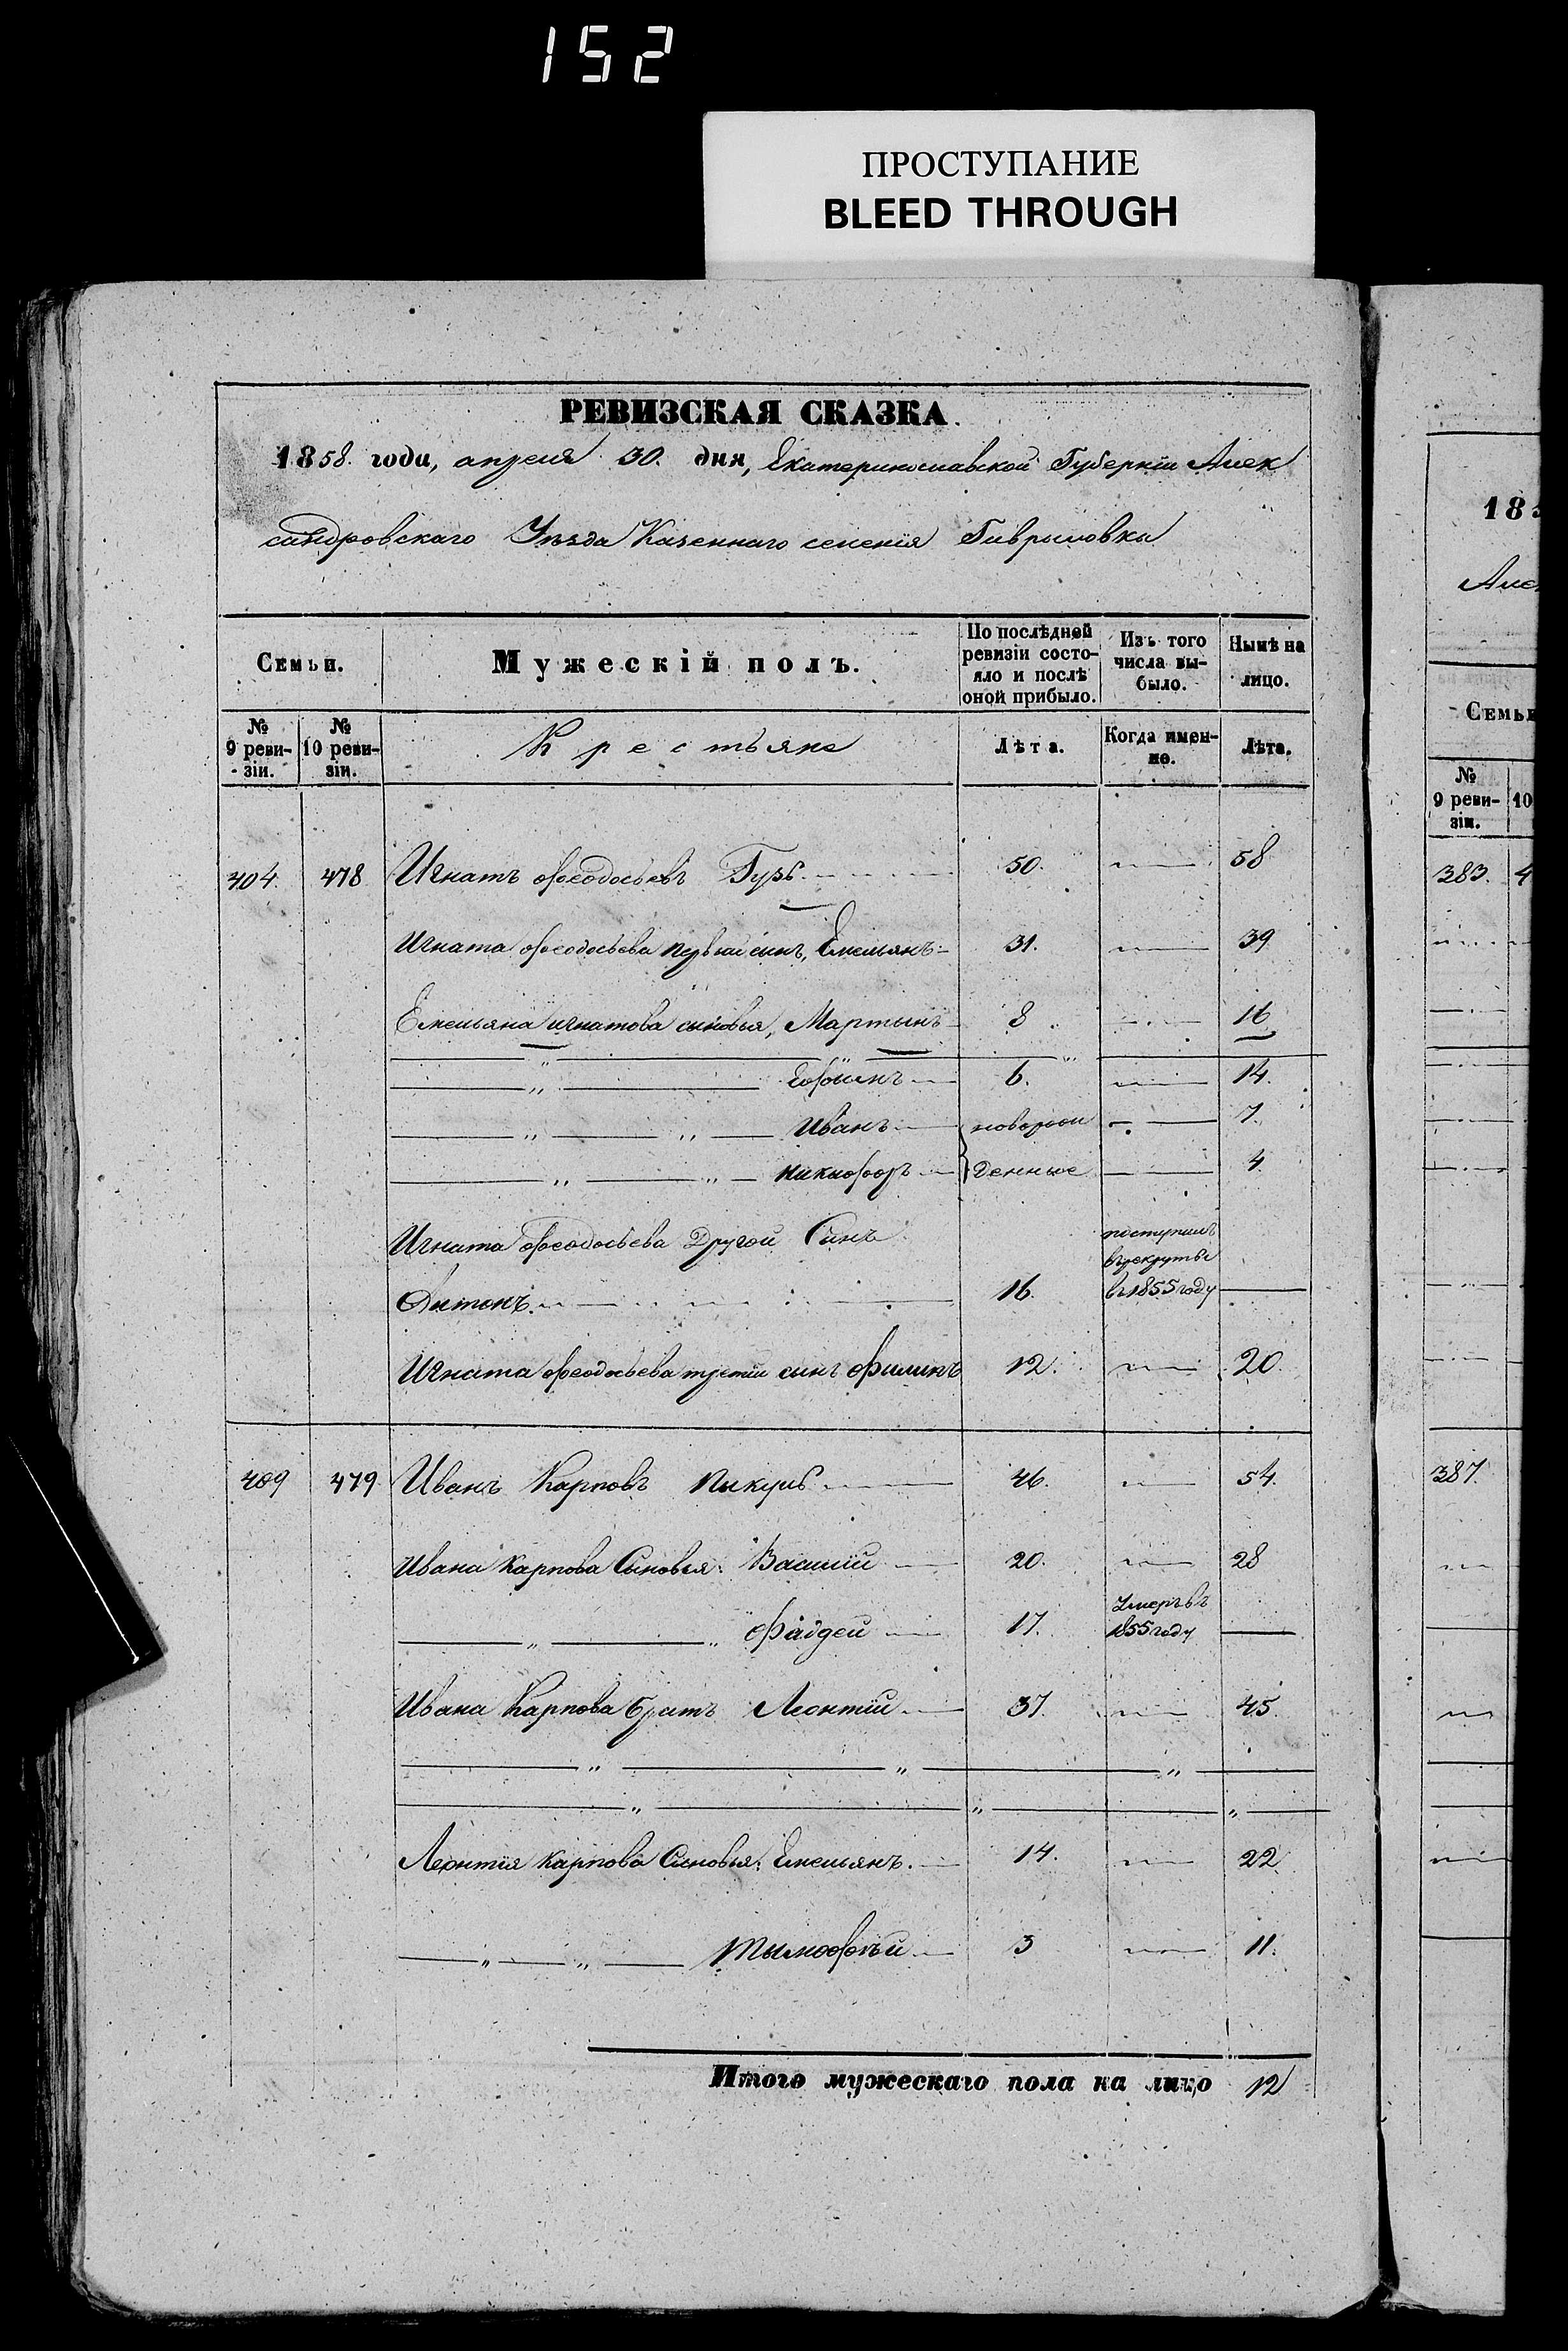 152
ПРОСТУПАНИЕ
BLEED THROUGH
РЕВИЗСКАЯ СКАЗКА.
1858. года, апреля 30. дня, Екатеринославской Губернии Алек
сандровскаго Уезда Казеннаго селения Гавриловки
Семьи. Мужескій полъ. По послѣдней ревизіи состояло и послѣ оной прибыло. Изъ того числа выбыло. Нынѣ на лицо.
№ 9 ревизіи. № 10 ревизіи. Крестьяне Лѣта. Когда именно. Лѣта.
404. 478 Игнатъ Феодосьевъ Гузь 50. 58
Игната Феодосьева первый сынъ, Емельянъ 31. 39
Емельяна Игнатова сыновья, Мартынъ 8 16
" Ефимъ 6. 14.
" " Иванъ новорож 7.
" " Никифоръ денные 4
Игната Феодосьева Другой Сынъ поступилъ
в рекруты
Антонъ. 16. въ 1855 году
Игната Феодосьева третій сынъ Филипъ 12. 20.
409 479 Иванъ Карповъ Пикуль 46. 54.
Ивана Карпова Сыновья: Василій 20. 28
" " Фадей 17. Умеръ въ 1855 году
Ивана Карпова братъ Леонтій 37. 45.
" " "
" " "
Леонтія Карпова Сыновья: Емельянъ. 14. 22
" " Тымофѣй 3 11.
Итого мужескаго пола на лицо 12
185
Алек
Семьи
№ 9 ревизіи. 10
383. 4
387.